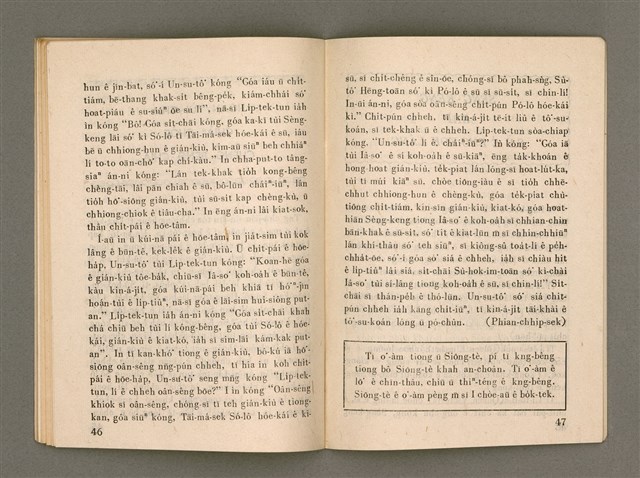 hun ê jīn-bat, só͘-í Un-su-tô͘ kóng “Góa iáu ū chi̍t-
tiám, bē-thang khak-sit bêng-pe̍k, kiám-chhái só͘
hoat-piáu ê su-siúⁿ ōe su lí”, nā-sī Li̍p-tek-tun iáh
ìn kóng “Bô! Góa si̍t-chāi kóng, góa ka-kī tùi Sèng-
keng lāi só͘ kì Só-lô tī Tāi-má-sek hóe-kái ê sū, iáu
bē ū chhiong-hun ê giân-kiù, kim-aū siūⁿ beh chhiáⁿ
lí to-to oān-chō͘ kap chí-kàu.” In chha-put-to tâng-
siaⁿ án-ni kóng: “Lán tek-khak tio̍h kong-bêng
chèng-tāi, lâi pān chiah ê sū, bô-lūn cháiⁿ-iūⁿ, lán
tio̍h hō͘-siōng giân-kiù, tùi sū-si̍t kap chèng-kù, ū
chhiong-chiok ê tiâu-cha.” In ēng án-ni lâi kiat-sok,
thàn chit-pái ê hōe-tâm.
Í-aū in ū kúi-nā pái ê hōe-tâm, in jia̍t-sim tùi kok
lâng ê būn-tê, kek-le̍k ê giân-kiù. Ū chi̍t-pái ê hōe-
ha̍p, Un-su-tô͘ tùi Li̍p-tek-tun kóng: “Koan-hē góa
ê giân-kiù tōe-ba̍k, chiū-sī Iâ-so͘ koh-oa̍h ê būn-tê,
kàu kin-á-ji̍t, góa kúi-nā-pái beh khiā tī hó͘-ⁿ-jīn
hoān-tùi ê li̍p-tiûⁿ, nā-sī góa ê lāi-sim hui-siông put-
an.” Li̍p-tek-tun iáh án-ni kóng “Góa si̍t-chāi khah
chá chiū beh tùi lí kóng-bêng, góa tùi Só-lô ê hóe-
kái, giân-kiù ê kiat-kó, iáh sī sim-lāi kám-kak put-
an”. In tī kan-khó͘ tiong ê giân-kiù, bô-kú iā hō͘-
siōng oān-sêng nn̄g-pún chheh, tī hia in koh chi̍t-
pái ê hōe-ha̍p, Un-su-tô͘ seng mn̄g kóng “Li̍p-tek-
tun, lí ê chheh oân-sêng bōe?” I ìn kóng “Oân-sêng
khiok sī oân-sêng, chóng-sī tī teh giân-kiù ê tiong-
kan, góa siūⁿ kóng, Tāi-má-sek Só-lô hóe-kái ê kì-
46
sū, sī chi̍t-chêng ê sîn-ōe, chóng-sī bô phah-sǹg, Sú-
tô͘ Hēng-toān só͘ kì Pó-lô ê sū sī sū-si̍t, sī chin-lí!
In-ūi án-ni, góa soà oân-sêng chi̍t-pún Pó-lô hóe-kái
kì.” Chit-pún chheh, tī kin-á-ji̍t tē-it liú ê tô͘-su-
koán, sī tek-khak ū ê chheh. Li̍p-tek-tun sòa-chiap
kóng. “Un-su-tô͘ lí ê, cháiⁿ-iūⁿ?” Ìn kóng: “Góa iā
tùi Iâ-so͘ ê sí koh-oa̍h ê sū-kiāⁿ, ēng ták-khoán ê
hong-hoat giân-kiù, te̍k-pia̍t lán lóng-sī hoat-lu̍t-ka,
tùi tī múi kiāⁿ sū, chòe tiōng-iàu ê sī tio̍h chhē-
chhut chhiong-hun ê chèng-kù, góa te̍k-pia̍t chù-
tiōng chit-tiám, kin-sīn giân-kiù, kiat-kó, góa hoat-
hiān Sèng-keng tiong Iâ-so͘ ê koh-oa̍h sī chhian-chin
bān-khak ê sū-si̍t, só͘ tit ê kiat-lūn m̄ sī chhin-chhiūⁿ
lán khí-thâu só͘ teh siūⁿ, sī kiông-sû toa̍t-lí ê pe̍h-
chhát-ōe, só͘-í góa só͘ siá ê chheh, iáh sī chiàu hit
ê li̍p-tiûⁿ lâi siá, si̍t-chāi Sù-hok-im-toān só͘ kì-chài
Iâ-so͘ tùi sí-lâng tiong koh-oa̍h ê sū, sī chin-lí!” Si̍t-
chāi sī thàn-pe̍h ê thó-lūn. Un-su-tô͘ só͘ siá chit-
pún chheh iáh kāng chit-iūⁿ, tī kin-á-ji̍t tāi-khài ê
tô͘-su-koán lóng ū pó-chûn. (Phian-chhip-sek)
Tī o͘-àm tiong ū Siōng-tè, pí tī kng-bêng
tiong bô Siōng-tè khah an-choân. Tī o͘-àm ê
lō͘ ê chīn-thâu, chiū ū thiⁿ-têng ê kng-bêng,
Siōng-tè ê o͘-àm pēng m̄ sī I chòe-aū ê bo̍k-tek.
47